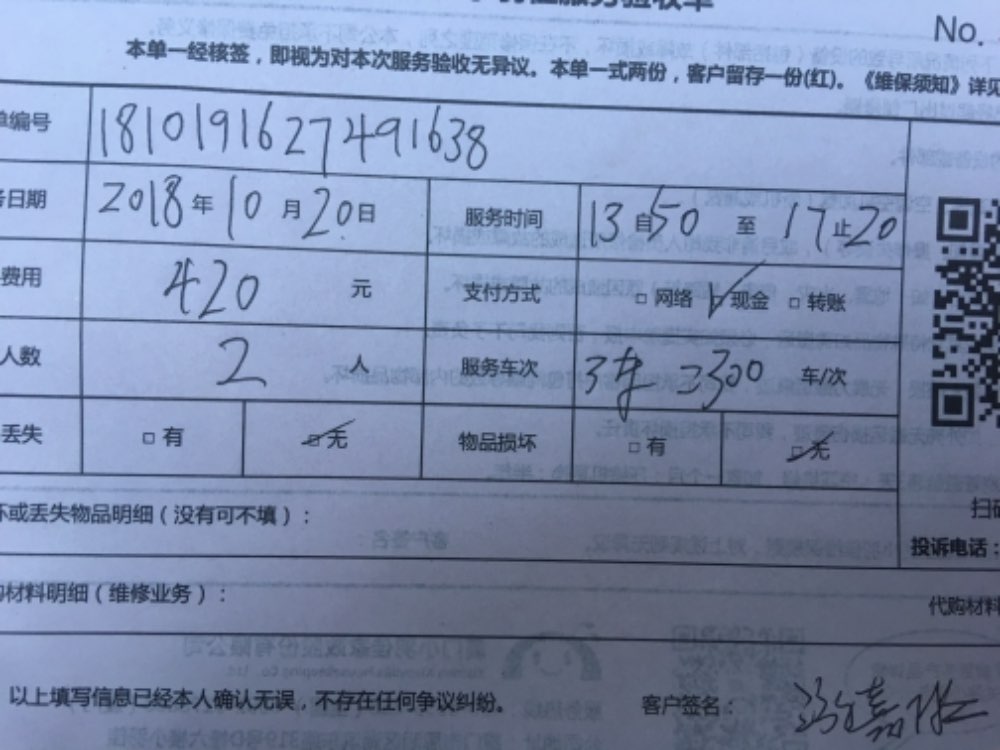 服务验收单
No.
本单一经核签，即视为对本次服务验收无异议。本单一式两份，客户留存一份(红)。《维保须知》详见
单编号 1810191627491638
务日期 2018年10月20日 服务时间 13自50 至 17止20
费用 420 元 支付方式 □网络 ☑现金 □转账
人数 2 人 服务车次 3车 300 车/次
丢失 □有 ☑无 物品损坏 □有 ☑无
坏或丢失物品明细（没有可不填）：
扫码
投诉电话：
购材料明细（维修业务）：
代购材料
以上填写信息已经本人确认无误，不存在任何争议纠纷。 客户签名：